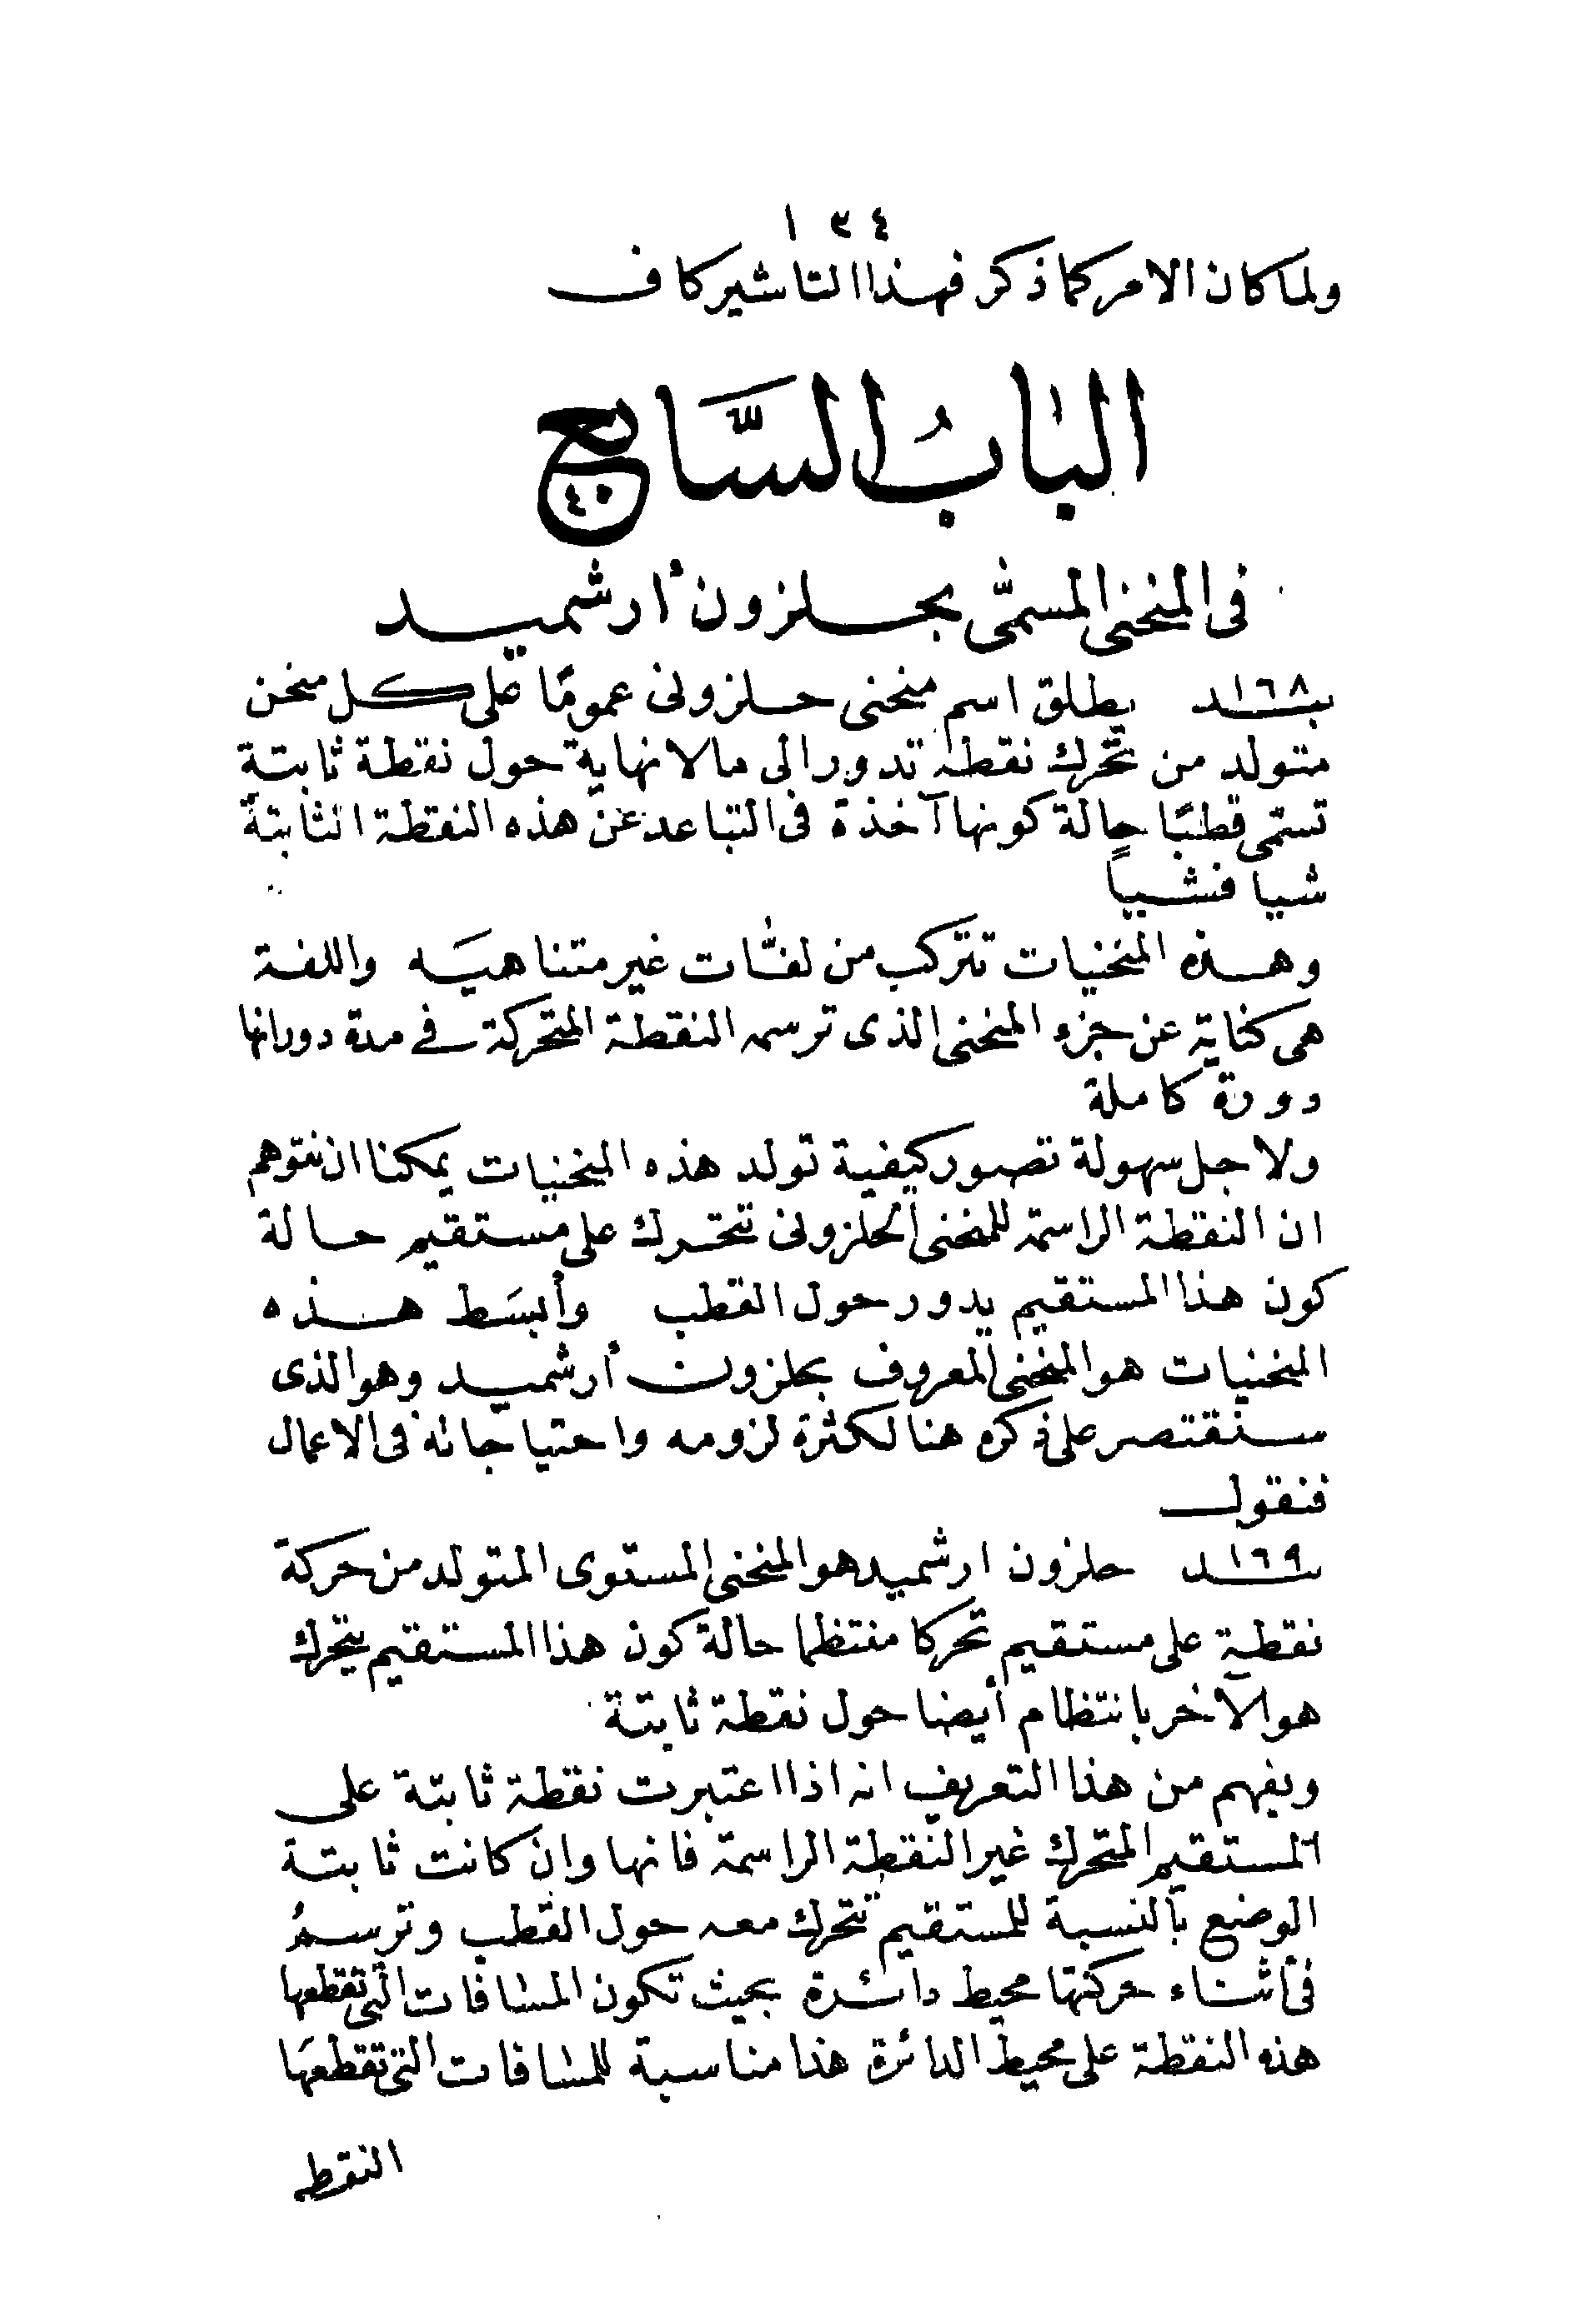 ١٣٤
ولما كان الامر كما ذكر فهذا التاشير كاف
البابُ السَّابع
فى المنحنى المسمَّى بحلزون أرشميد
١٦٨ـند يطلق اسم منحنى حلزونى عمومًا على كل منحن
متولد من تحرك نقطة تدور الى مالا نهاية حول نقطة ثابتة
تستمى قطبًا حالة كونها آخذة فى التباعد عن هذه النقطة الثابتة
شيا فشيياً
وهذه المنحنيات تتركب من لفَّات غير متناهيَه واللفة
هى كناية عن جزء المنحنى الذى ترسمه النقطة المتحركة فى مدة دورانها
دورة كاملة
ولاجل سهولة تصور كيفية تولد هذه المنحنيات يمكننا ان نتوهم
ان النقطة الراسمة للمنحنى الحلزونى تتحرك على مستقيم حالة
كون هذا المستقيم يدور حول القطب وأبسَط هذه
المنحنيات هو المنحنى المعروف بحلزون أرشميد وهو الذى
سنقتصر على ذكره هنا لكثرة لزومه واحتياجاته فى الاعمال
فنقول
١٦٩ـند حلزون ارشميد هو المنحنى المستوى المتولد من حركة
نقطة على مستقيم تحركا منتظما حالة كون هذا المستقيم يتحرك
هو الآخر بانتظام أيضا حول نقطة ثابتة
ويفهم من هذا التعريف انه اذا اعتبرت نقطة ثابتة على
المستقيم المتحرك غير النقطة الراسمة فانها وان كانت ثابتة
الوضع بالنسبة للمستقيم تتحرك معه حول القطب وترسمُ
فى أثناء حركتها محيط دائرة بحيث تكون المسافات التى تقطعها
هذه النقطة على محيط الدائرة هذا مناسبة للمسافات التى تقطعهَا
النقطه